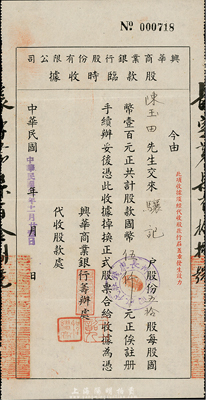 No 000718
興華商業銀行股份有限公司
股款臨時收據
今由
陳玉田先生交來 驥記 戶股份五拾股每股國
幣壹百元正共計股款國幣伍仟元正俟註冊
手續辦妥後憑此收據掉換正式股票合給收據為憑
興華商業銀行籌辦處
代收股款處
中華民國 年 月 日
此項收據須經代收股款銀行蓋章發生效力